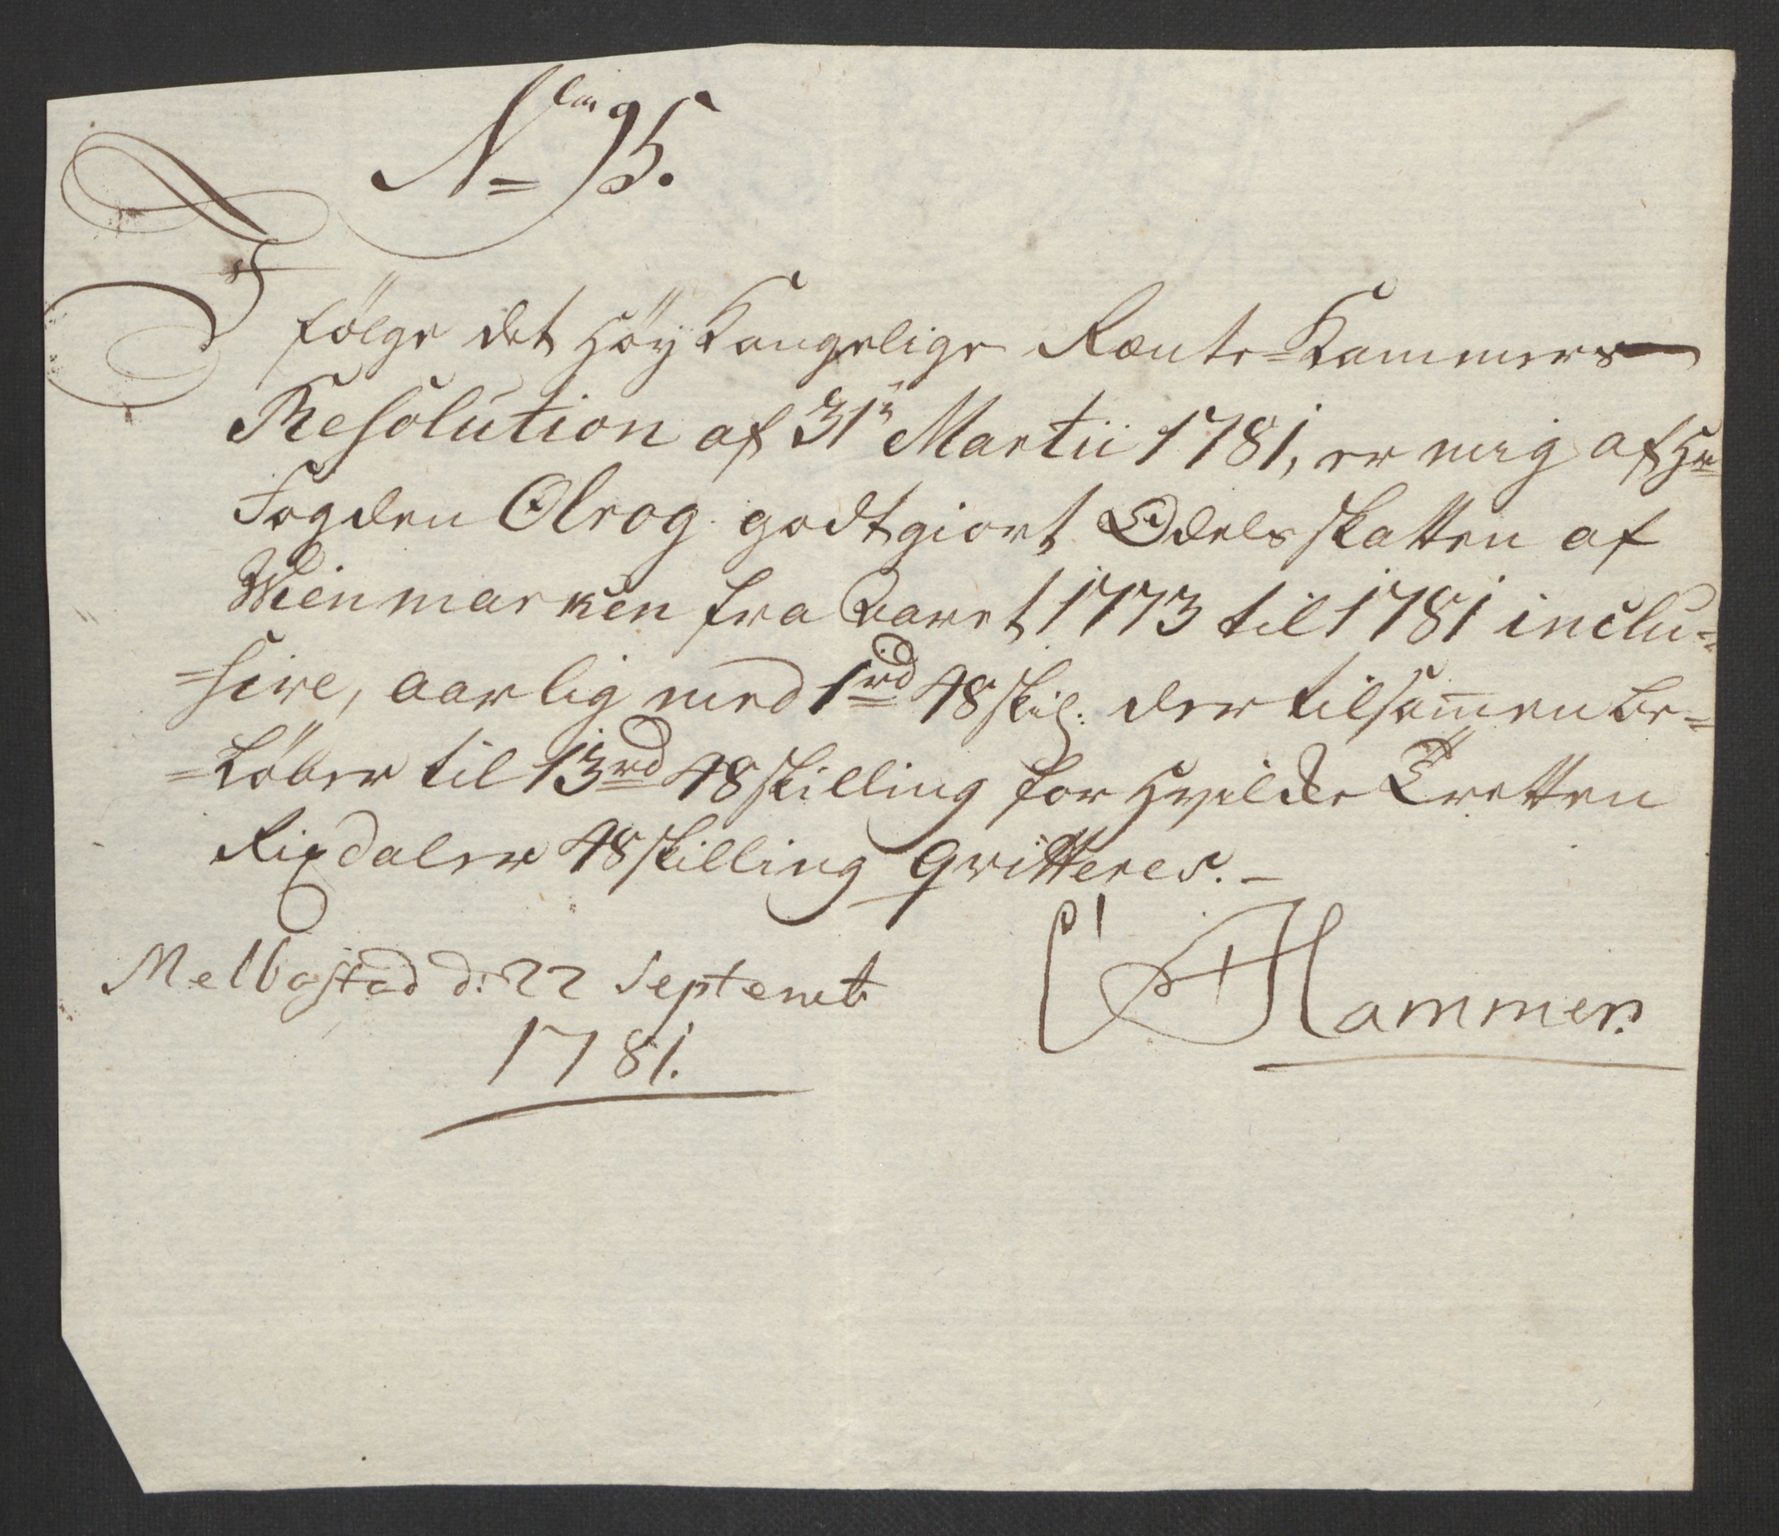 N= 95.
I
følge det Høy Kongelige Rænte=Kammers
Resolution af 31te Martii 1781, er mig af Hr
Fogden Olrog godtgiort Odels skatten af
Weinmarken fra Aaret 1773 til 1781 inclu=
=sive, aarlig med 1rd 48 skil: der tilsammen be=
=løber til 13rd 48 skilling for Hvilcke Tretten
Rixdaler 48 skilling qvitteres. –
Melbostad d: 22 Septemb
1781.
C Hammer.